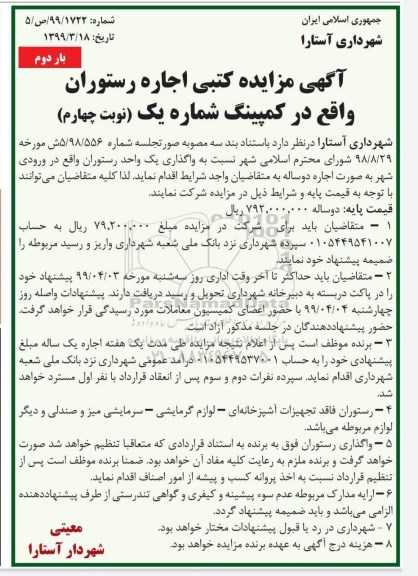 جمهوری اسلامی ایران
شهرداری آستارا
شماره: ۹۹/۱۷۲۲/ص/۵
تاریخ: ۱۳۹۹/۳/۱۸
بار دوم
آگهی مزایده کتبی اجاره رستوران
واقع در کمپینگ شماره یک (نوبت چهارم)
شهرداری آستارا درنظر دارد باستناد بند سه مصوبه صورتجلسه شماره ۵/۹۸/۵۵۶ش مورخه
۹۸/۸/۲۹ شورای محترم اسلامی شهر نسبت به واگذاری یک واحد رستوران واقع در ورودی
شهر به صورت اجاره دوساله به متقاضیان واجد شرایط اقدام نماید. لذا کلیه متقاضیان می‌توانند
با توجه به قیمت پایه و شرایط ذیل در مزایده شرکت نمایند.
قیمت پایه: دوساله ۷۹۲,۰۰۰,۰۰۰ ریال
۱ – متقاضیان باید برای شرکت در مزایده مبلغ ۷۹,۲۰۰,۰۰۰ ریال به حساب
۰۱۰۵۴۴۹۵۴۱۰۰۷ سپرده شهرداری نزد بانک ملی شعبه شهرداری واریز و رسید مربوطه را
ضمیمه پیشنهاد خود نمایند.
۲ – متقاضیان باید حداکثر تا آخر وقت اداری روز سه‌شنبه مورخه ۹۹/۰۴/۰۳ پیشنهاد خود
را در پاکت دربسته به دبیرخانه شهرداری تحویل و رسید دریافت دارند. پیشنهادات واصله روز
چهارشنبه ۹۹/۰۴/۰۴ با حضور اعضای کمیسیون معاملات مورد رسیدگی قرار خواهد گرفت.
حضور پیشنهاددهندگان در جلسه مذکور آزاد است.
۳ – برنده موظف است پس از اعلام نتیجه مزایده طی مدت یک هفته اجاره یک ساله مبلغ
پیشنهادی خود را به حساب ۰۱۰۵۴۴۹۵۳۷۰۰۱ درآمد عمومی شهرداری نزد بانک ملی شعبه
شهرداری اقدام نماید. سپرده نفرات دوم و سوم پس از انعقاد قرارداد با نفر اول مسترد خواهد
شد.
۴ – رستوران فاقد تجهیزات آشپزخانه‌ای – لوازم گرمایشی – سرمایشی میز و صندلی و دیگر
لوازم مربوطه می‌باشد.
۵ – واگذاری رستوران فوق به برنده به استناد قراردادی که متعاقبا تنظیم خواهد شد صورت
خواهد گرفت و برنده ملزم به رعایت کلیه مفاد آن خواهد بود. ضمنا برنده موظف است پس از
تنظیم قرارداد نسبت به اخذ پروانه کسب و پیشه از امور اصناف اقدام نماید.
۶ – ارایه مدارک مربوطه عدم سوء پیشینه و کیفری و گواهی تندرستی از طرف پیشنهاددهنده
الزامی می‌باشد و باید ضمیمه پیشنهاد گردد.
۷ – شهرداری در رد یا قبول پیشنهادات مختار خواهد بود.
۸ – هزینه درج آگهی به عهده برنده مزایده خواهد بود.
معیتی
شهردار آستارا